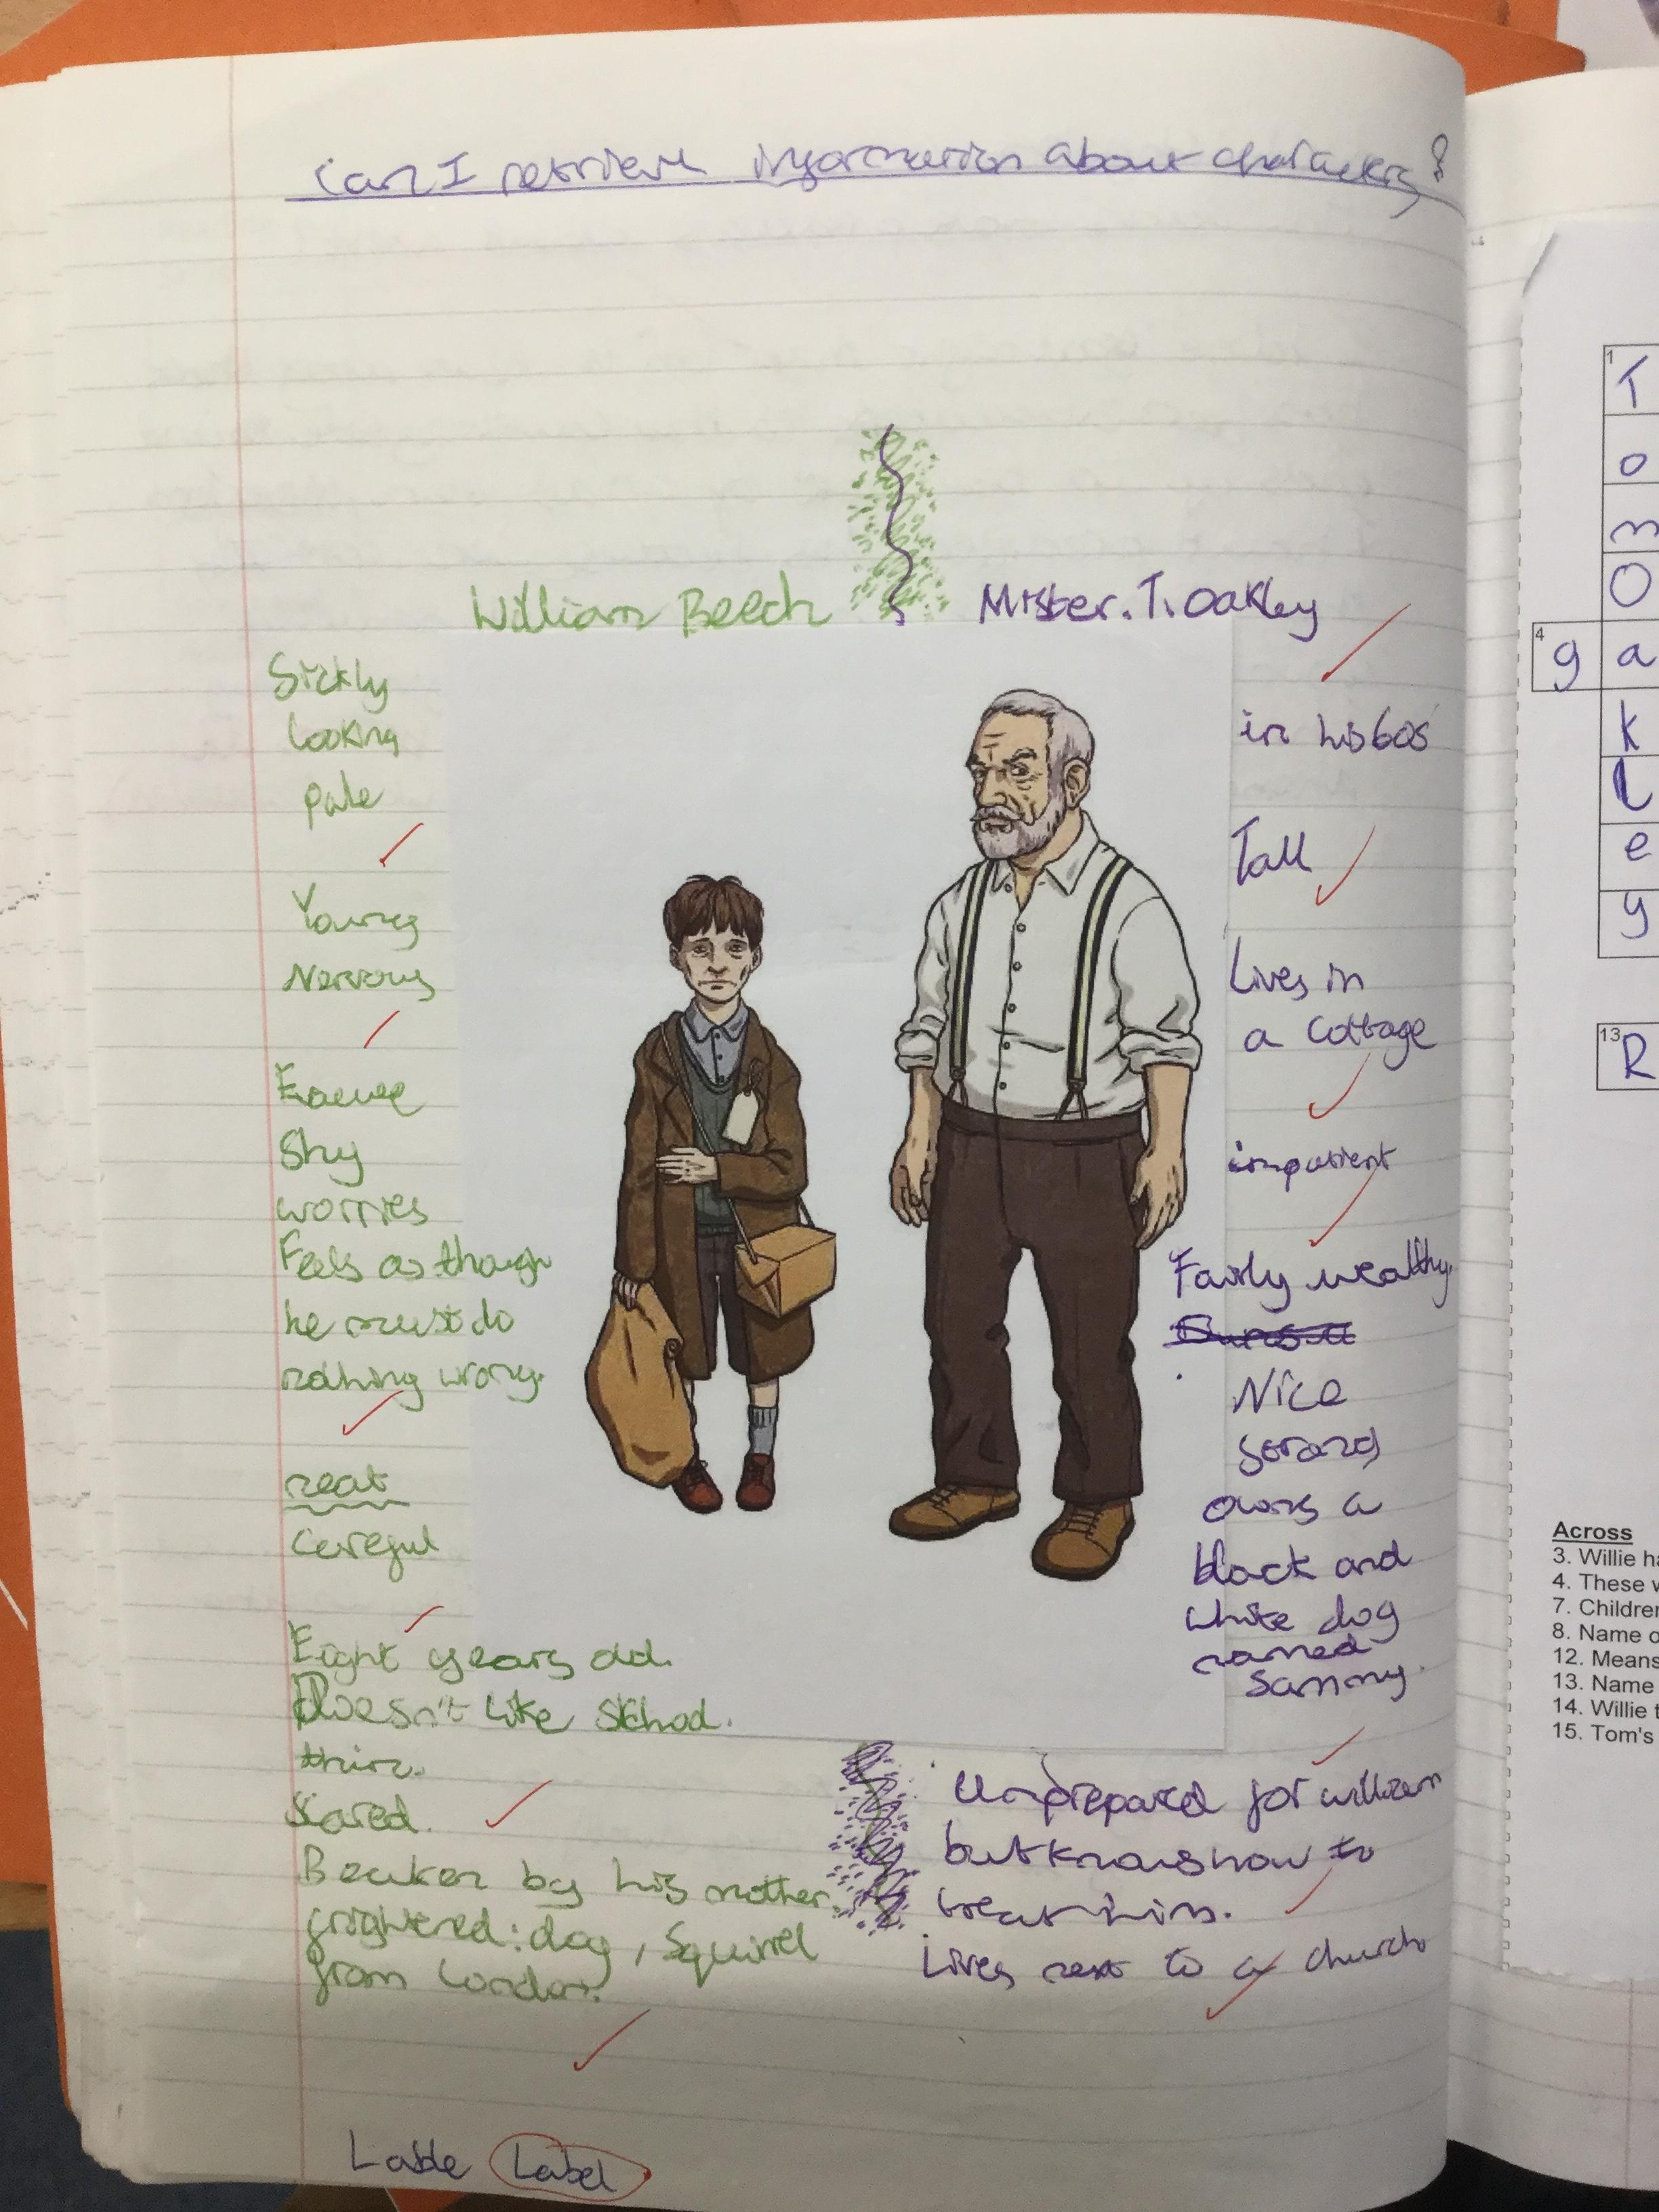 Can I retrieve information about characters?
William Beech
Mister. T. Oakley
Sickly
looking
pale
Young
Nervous
Shy
worries
Feels as though
he must do
nothing wrong.
neat
Careful
Eight years old.
Doesn't like School.
thin.
Scared.
Beaken by his mother.
frightened: dog, Squirrel
from London.
in his 60s
Tall
Lives in
a cottage
impatient
Fairly wealthy.
Nice
owns a
black and
white dog
named
Sammy.
Unprepared for william
but knows how to
treat him.
Lives next to a church
Lable Label
1
T
o
m
O
4
g a
k
l
e
y
13
R
Across
3. Willie ha
4. These w
7. Children
8. Name o
12. Means
13. Name
14. Willie t
15. Tom's